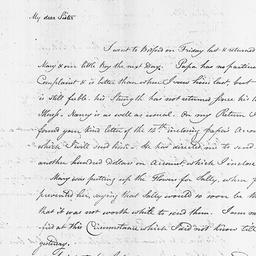 My dear Sister
I went to Bristol on Friday last & returned
Mary & our little Boy the next Day. Papa has no particu
Complaint & is better than when I was here last, but
is still feeble his Strength has not returned since his
Nancy is as well as usual. On my Return
found your kind letter of the 15th inclosing papa's Accou
which I will send him. He has directed me to send
another hundred Dollars on Account, which I inclose
Mary was putting up the Flowers for Sally, when
prevented her, saying that Sally would so soon be
that it was not worth while to send them. I am
at this Circumstance which I did not know till
yesterday.